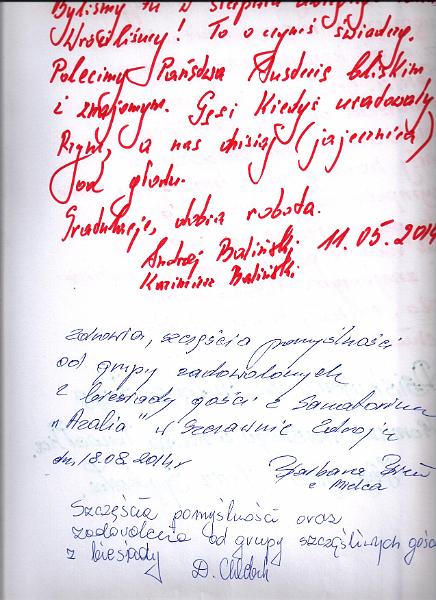 Byliśmy tu w sierpniu
Wróciliśmy! To o czymś świadczy.
Polecimy Państwa bliskim
i znajomym. Gęsi kiedyś uradowały
Rzym, a nas dzisiaj (jajecznica)
od głodu.
Gratulacje, dobra robota.
Andrzej Baliński 11.05.2014
Kazimierz Baliński
Zdrowia, szczęścia pomyślności
od grupy zadowolonych
z biesiady gości z Sanatorium
"Azalia" w Szczawnie Zdroju
dn. 18.08.2014r
z Mielca
Szczęścia pomyślności oraz
zadowolenia od grupy szczęśliwych gości
z biesiady D.